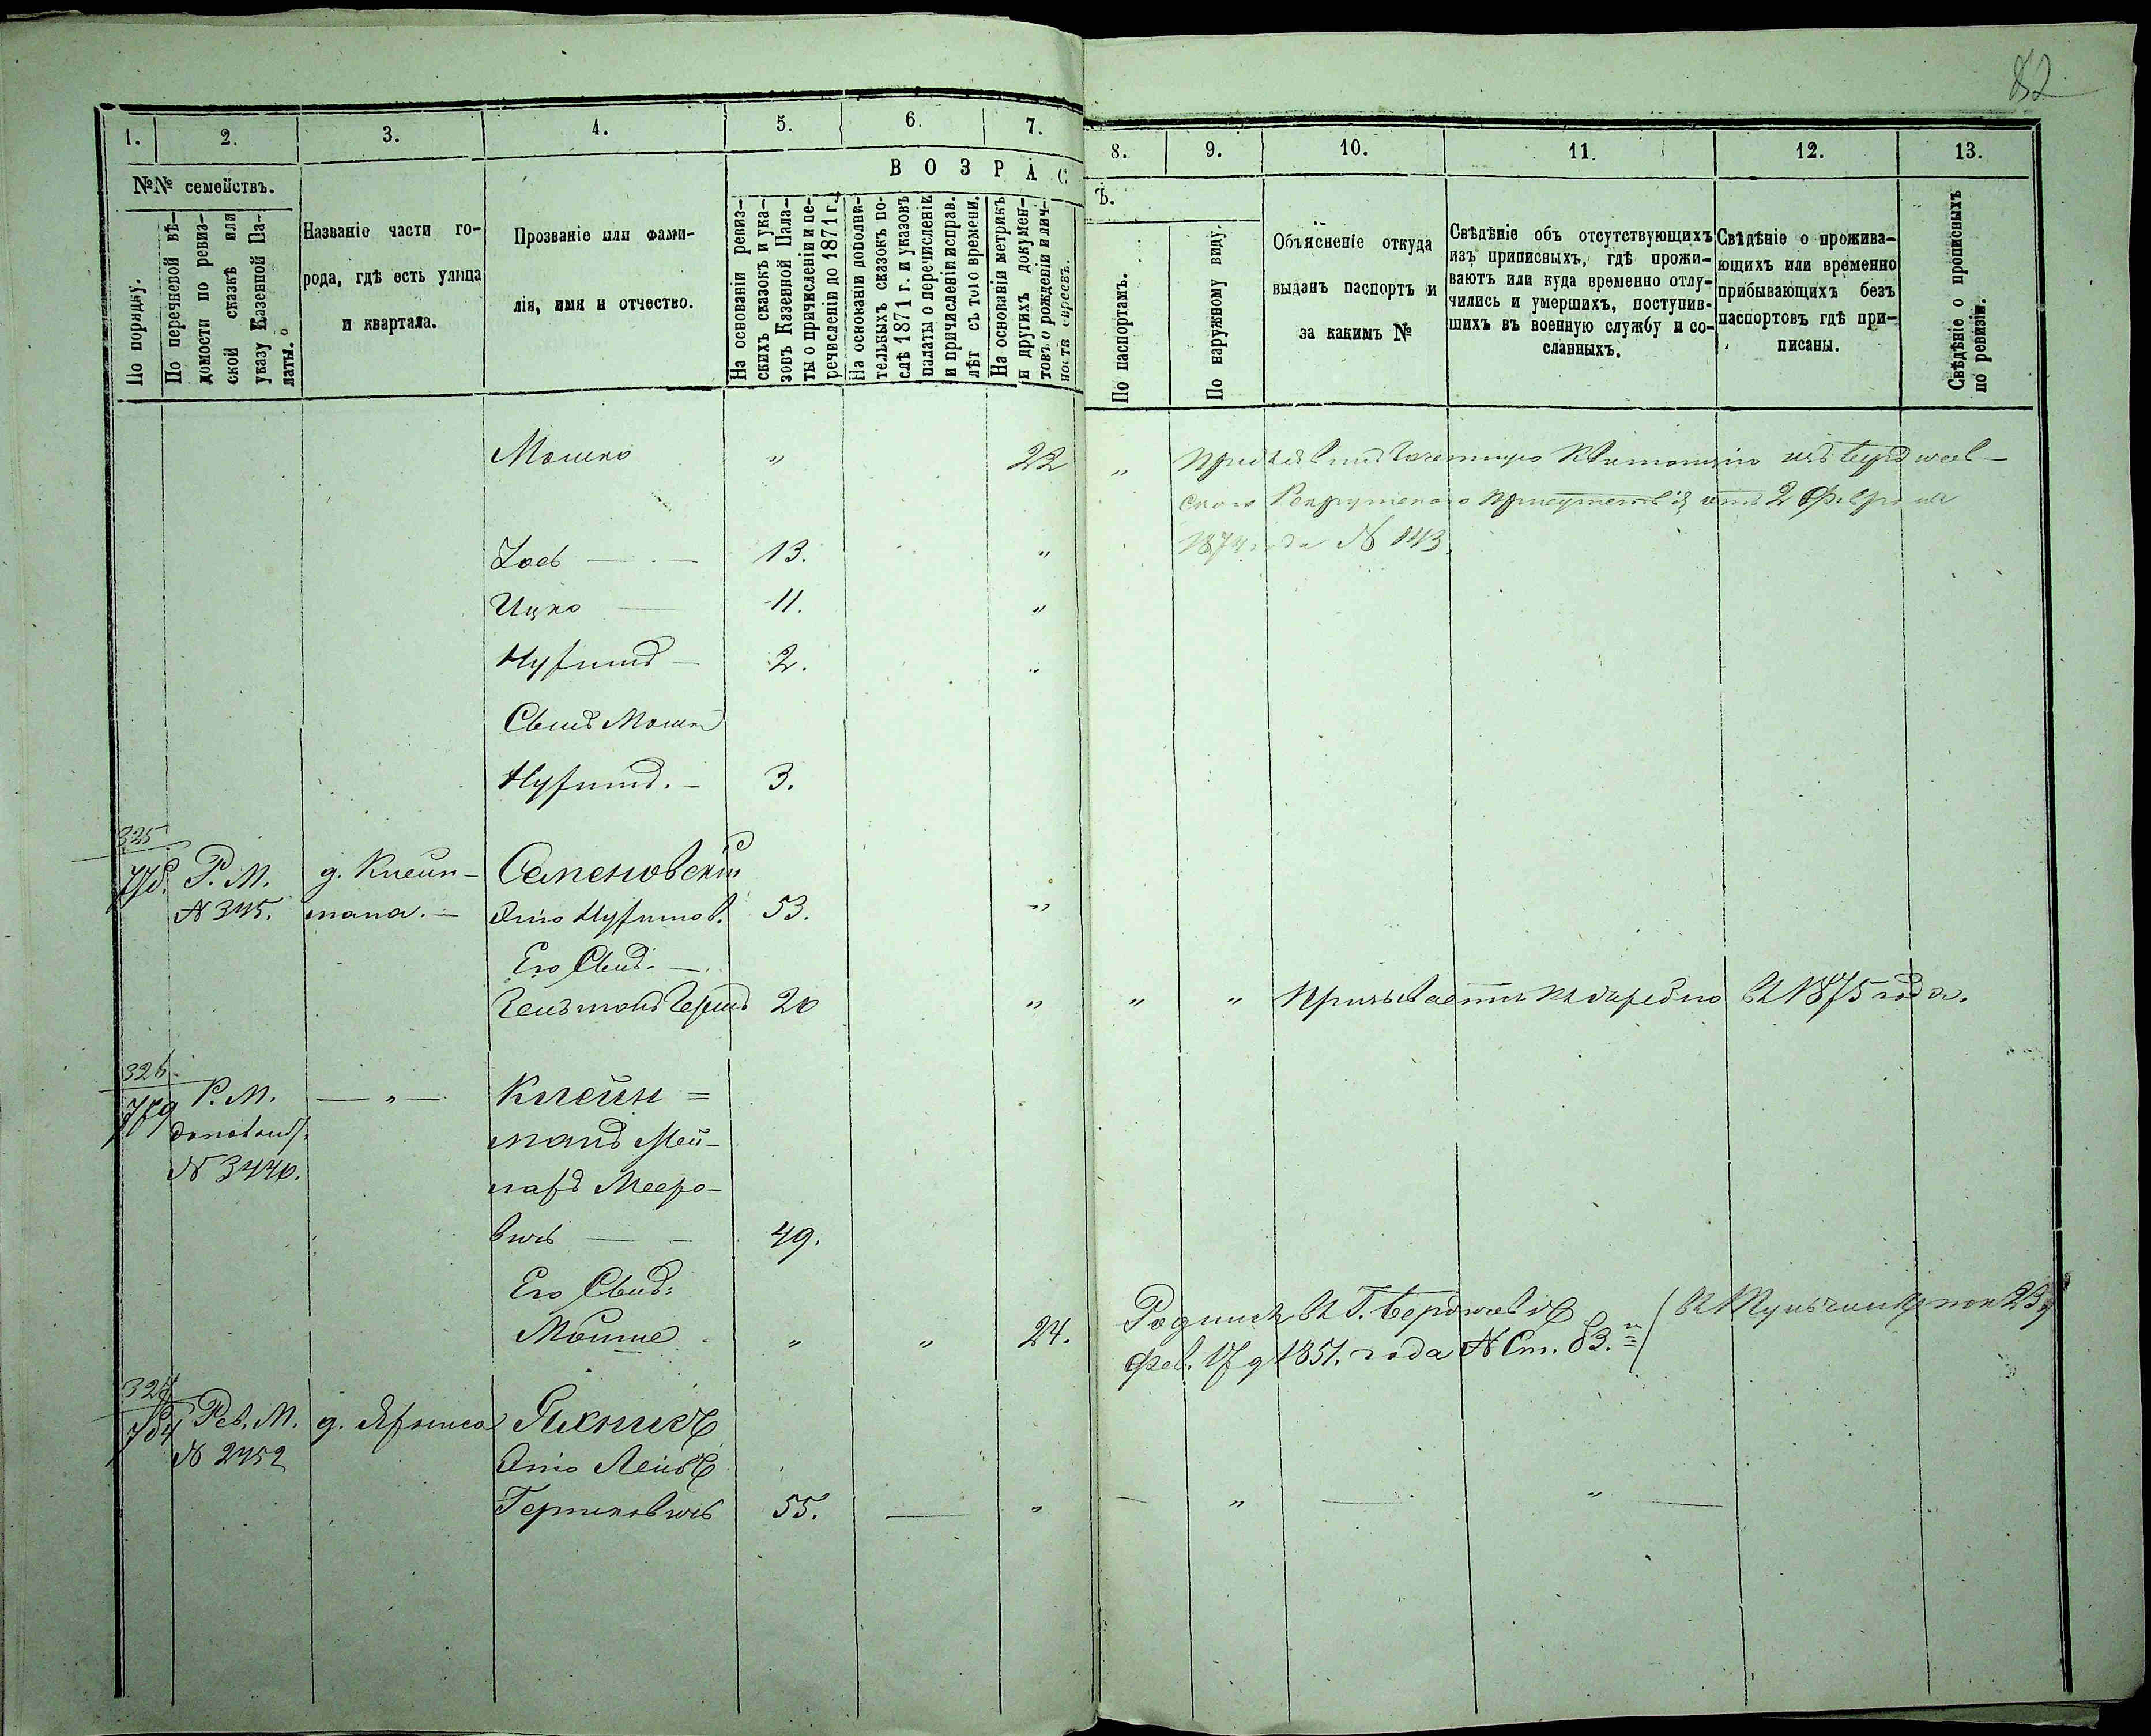 82
1. 2. 3. 4. 5. 6. 7. 8. 9. 10. 11. 12. 13.
№№ семействъ.
По порядку.
По перечневой вѣ-
домости по ревиз-
ской сказкѣ или
указу Казенной Па-
латы.
Названіе части го-
рода, гдѣ есть улица
и квартала.
Прозваніе или фами-
лія, имя и отчество.
ВОЗРАС
Ъ.
На основаніи ревиз-
скихъ сказокъ и ука-
зовъ Казенной Пала-
ты о причисленіи и пе-
речисленіи до 1871 г.
На основаніи дополни-
тельныхъ сказокъ по-
слѣ 1871 г. и указовъ
палаты о перечисленіи
и причисленіи исправ.
лѣт съ того времени.
На основаніи метрикъ
и другихъ докумен-
товъ о рожденіи и лич-
носта евреевъ.
По паспортамъ.
По наружному виду.
Объясненіе откуда
выданъ паспортъ и
за какимъ №
Свѣдѣніе объ отсутствующихъ
изъ приписныхъ, гдѣ прожи-
ваютъ или куда временно отлу-
чились и умершихъ, поступив-
шихъ въ военную службу и со-
сланныхъ.
Свѣдѣніе о прожива-
ющихъ или временно
прибывающихъ безъ
паспортовъ гдѣ при-
писаны.
Свѣдѣніе о прописныхъ
по ревизіи.
Мошко " 22 " Предъявилъ Зачетную Квитанцію изъ Бердичев-
скаго Рекрутскаго Присутствія отъ 2 Февраля
1874 года № 143.
Іось — 13. "
Ицко — 11. "
Нухимъ — 2. "
Сынъ Мошка
Нухимъ. — 3.
325
778. Р. М. д. Клейн- Семеновскій
№ 345. мана. — Нухимов. 53. "
Его Сынъ. —
Зельманъ Герщъ 20 " " " Призывается къ жеребью въ 1875 году.
326
779 Р. М. — " — Клейн=
№ 3440. манъ Мей-
Мееро-
вичъ — 49.
Его Сынъ:
Мошше " " 24. Родился въ Г. Бердичевѣ
Фев. 17 д 1851. года № Ст. 83.
327
784 Рев. М. д.
№ 2452
Лейбъ
Гершковичъ 55. — " — " — " —